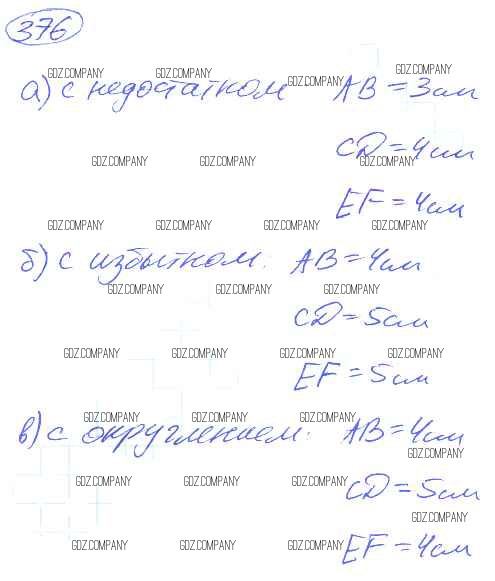 376
а) с недостатком AB = 3 см
CD = 4 см
EF = 4 см
б) с избытком: AB = 4 см
CD = 5 см
EF = 5 см
в) с округлением: AB = 4 см
CD = 5 см
EF = 4 см
GDZ.COMPANY GDZ.COMPANY GDZ.COMPANY GDZ.COMPANY
GDZ.COMPANY GDZ.COMPANY GDZ.COMPANY
GDZ.COMPANY GDZ.COMPANY GDZ.COMPANY GDZ.COMPANY
GDZ.COMPANY GDZ.COMPANY GDZ.COMPANY
GDZ.COMPANY GDZ.COMPANY GDZ.COMPANY GDZ.COMPANY
GDZ.COMPANY GDZ.COMPANY GDZ.COMPANY GDZ.COMPANY
GDZ.COMPANY GDZ.COMPANY GDZ.COMPANY GDZ.COMPANY
GDZ.COMPANY GDZ.COMPANY GDZ.COMPANY